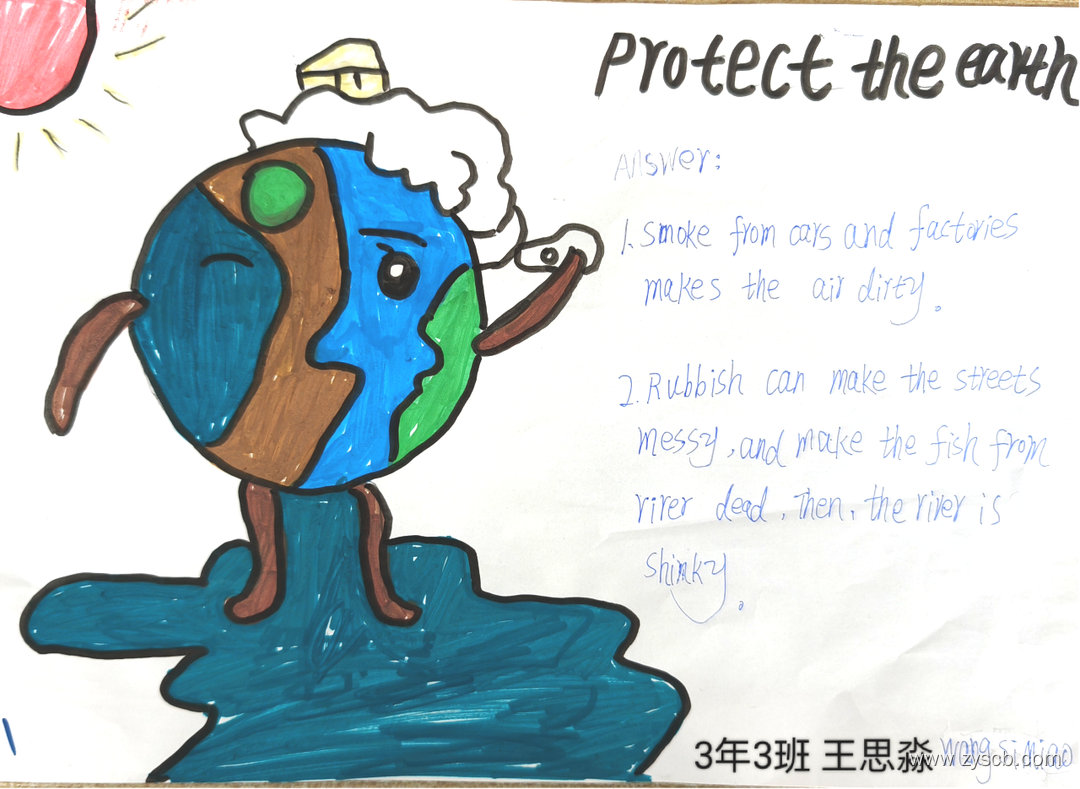 Protect the earth
Answer:
1. Smoke from cars and factories
makes the air dirty.
2. Rubbish can make the streets
messy, and make the fish from
rirer dead, Then, the river is
shinky.
3年3班 王思淼 wang si miao
www.zyscbl.com